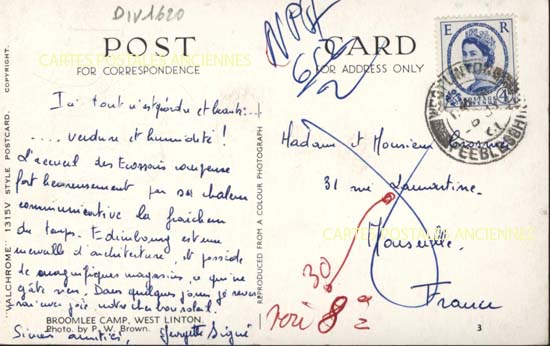 DIV1620
CARTES POSTALES ANCIENNES
POST CARD
FOR CORRESPONDENCE
FOR ADDRESS ONLY
E R
Ici tout n'est qu'ordre et beauté...
.... verdure et humidité!
L'accueil des Ecossais compense
fort heureusement par sa chaleur
communicative la fraîcheur
du temps. Edimbourg est une
merveille d'architecture, et possède
de magnifiques magasins, ce qui ne
gâte rien! Dans quelques jours je
avec joie notre cher
Sincères amitiés, Georgette
Madame et Monsieur
31 rue Lamartine.
Marseille.
France
30
8
CARTES POSTALES ANCIENNES
WEST LINTON
PEEBLESSHIRE
COPYRIGHT.
"VALCHROME" 1315V STYLE POSTCARD.
REPRODUCED FROM A COLOUR PHOTOGRAPH
BROOMLEE CAMP, WEST LINTON.
Photo. by P. W. Brown.
3